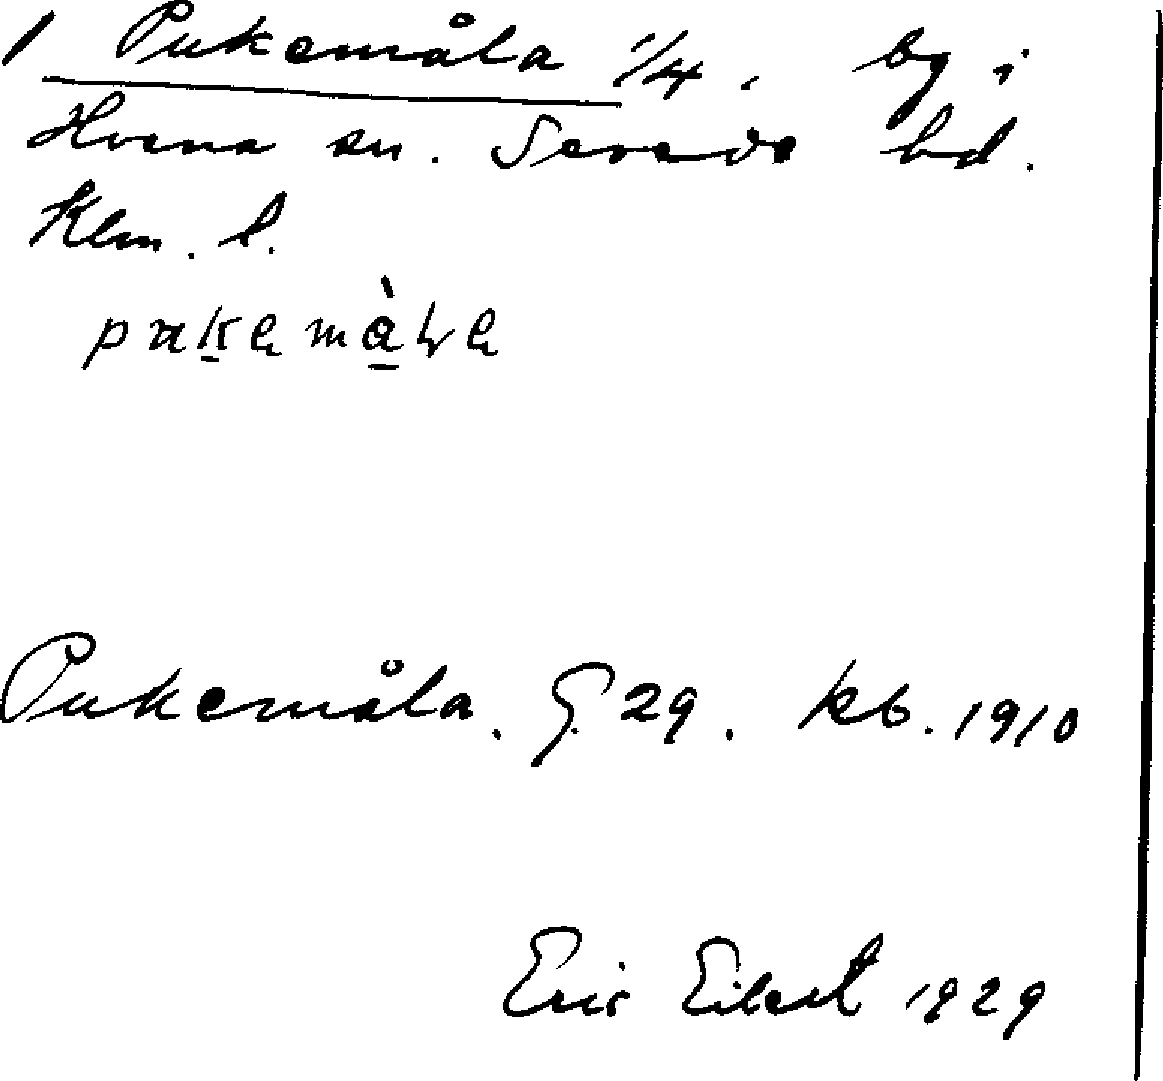 1 Pukemåla 1/4. by i
Hvena sn. Sevede hd.
Klm. l.
Pukemåla. J. 29. kb. 1910
Eric Eilert 1929